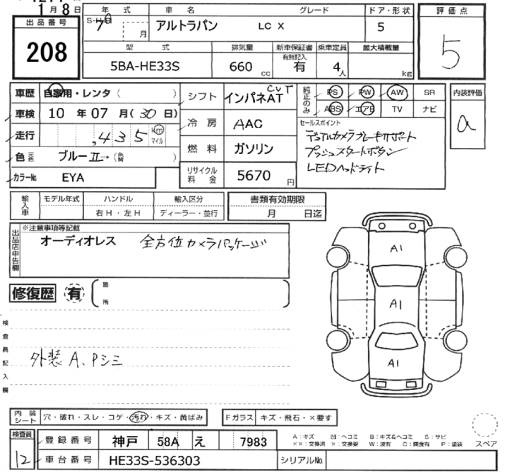 1月8日
出品番号 年式 車名 グレード ドア・形状 評価点
208
アルトラパン LC X 5
5
型式 排気量 新車保証書 乗車定員 最大積載量
有無記入
5BA-HE33S 660 cc 有 4人 kg
車歴 自家用・レンタ( )
シフト インパネAT CVT
純正のみ PS PW AW SR
ABS エアB TV ナビ
内装評価
a
車検 10年07月(30日)
走行 ,435 km マイル
冷房 AAC
セールスポイント
デュアルカメラブレーキサポート
プッシュスタートボタン
LEDヘッドライト
色 ブルーII→(替)
燃料 ガソリン
カラーNo EYA
リサイクル料金 5670円
輸入車 モデル年式 ハンドル 輸入区分
年 右H・左H ディーラー・並行
書類有効期限
月 日迄
出品店申告欄
※注意事項等記載
オーディオレス 全方位カメラパッケージ
修復歴 有 箇所
A1
A1
A1
検査員記入欄
外装 A、Pシミ
内装シート 穴・破れ・スレ・コゲ・汚れ・キズ・黄ばみ
Fガラス キズ・飛石・×要す
検査員
12
登録番号 神戸 58A え 7983
A:キズ B:キズ&ヘコミ S:サビ
スペア
車台番号 HE33S-536303 シリアルNo